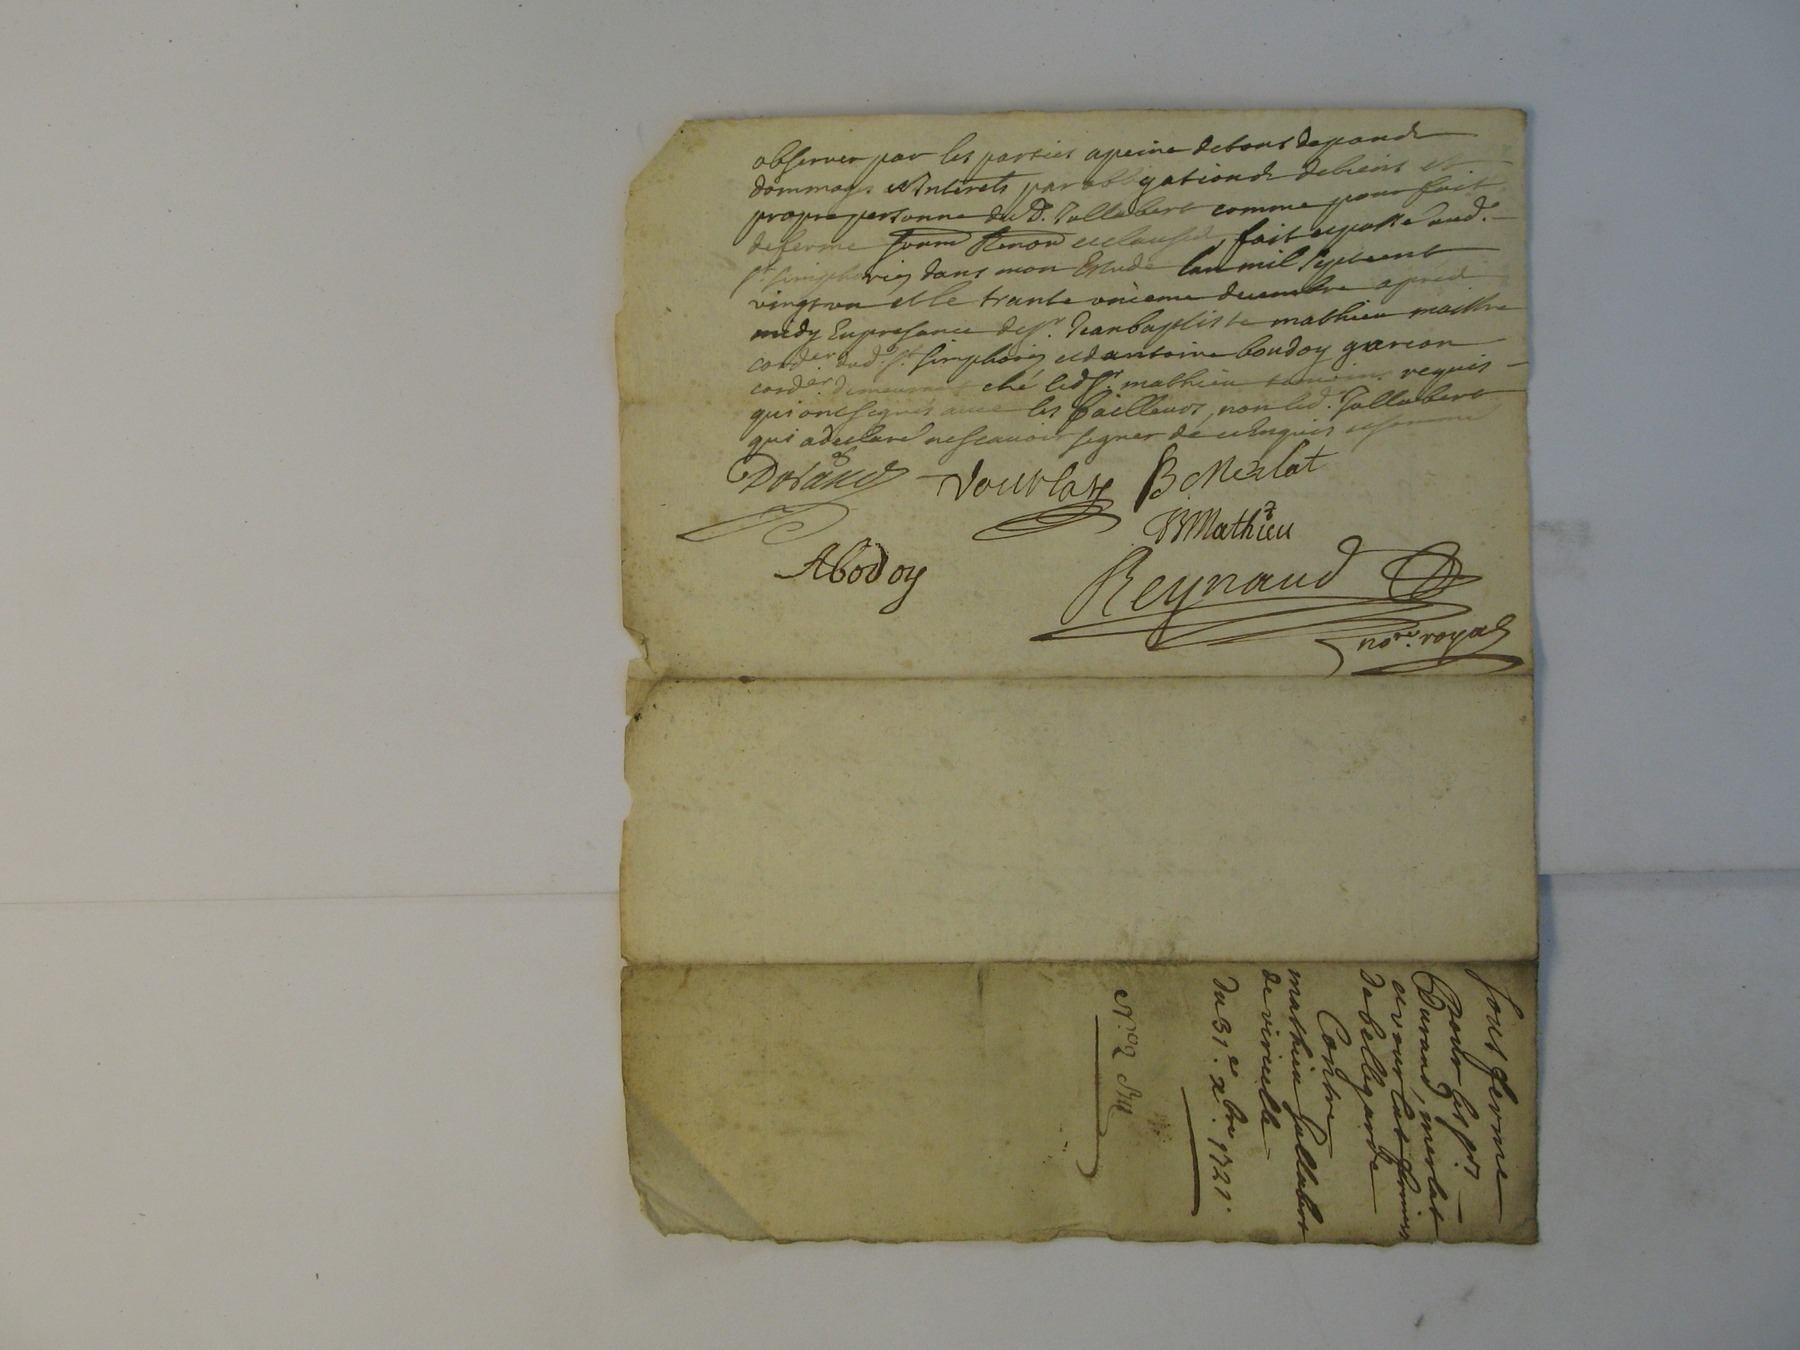 observer par les parties apeine detous depandz
dommages et Interets par obligationdz debiens et
propre personne dud. Jallabert comme pour fait
deferme foume Renon et clausé, fait et passé aud.
st. simphorien dans mon Estude lan mil sept cent
vingt un et le trante unieme decembre apred
midy En presance de sr. Jean baptiste mathieu maistre
cord.er dud. st. simphorien et dantoine boudoy garcon
cord.er demeurant ché led. sr. mathieu temoins requis
qui ont signés avec les bailleurs, non led. Jallabert
qui a declaré ne scavoir signer de ce Enquis et sommé
Durand Vourlat B Merlat
JB Mathieu
A bodoy
Reynaud
no.re royal
sous ferme
pour les srs
Durand, merlat
et vourlat fermiers
de bellegarde
Contre
mathieu Jallabert
de viricelle
du 31.e xbre 1721.
N.o 2